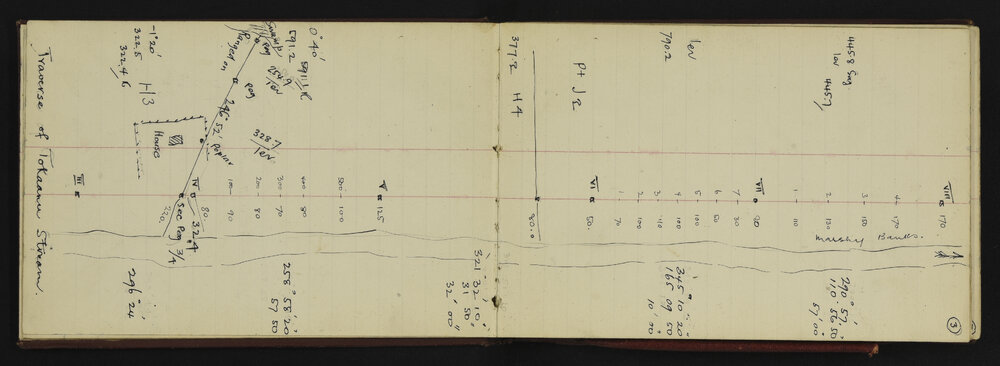 Traverse of Tokaanu Stream.
-1° 20'
322.5
322.4 R
H3
House
Swamp
Peg
254.9
lev
591.2
591.1 R
0° 40'
Peg
296° 52'
poplar
328.7
lev
III
IV
Sec Peg 3/4
32.4
220.
80.
100 - 90
200 - 80
300 - 70
400 - 80
500 - 100
V
125
296° 24'
258° 55' 20"
57 50
321° 32' 10"
31 50"
32' 00"
377.2 H4
80.0
Pt J2
lev
790.2
VI
50.
1 - 70
2 - 100
3 - 110
4 - 100
5 - 100
6 - 50
7 - 30
VII
20
345° 10' 20"
165 09 50
10' 00"
4458 Sag
lev
4457
1 - 110
2 - 130
3 - 150
4 - 170
VIII
170
Marshy Banks.
290° 57'
110 56 50
57' 00"
3